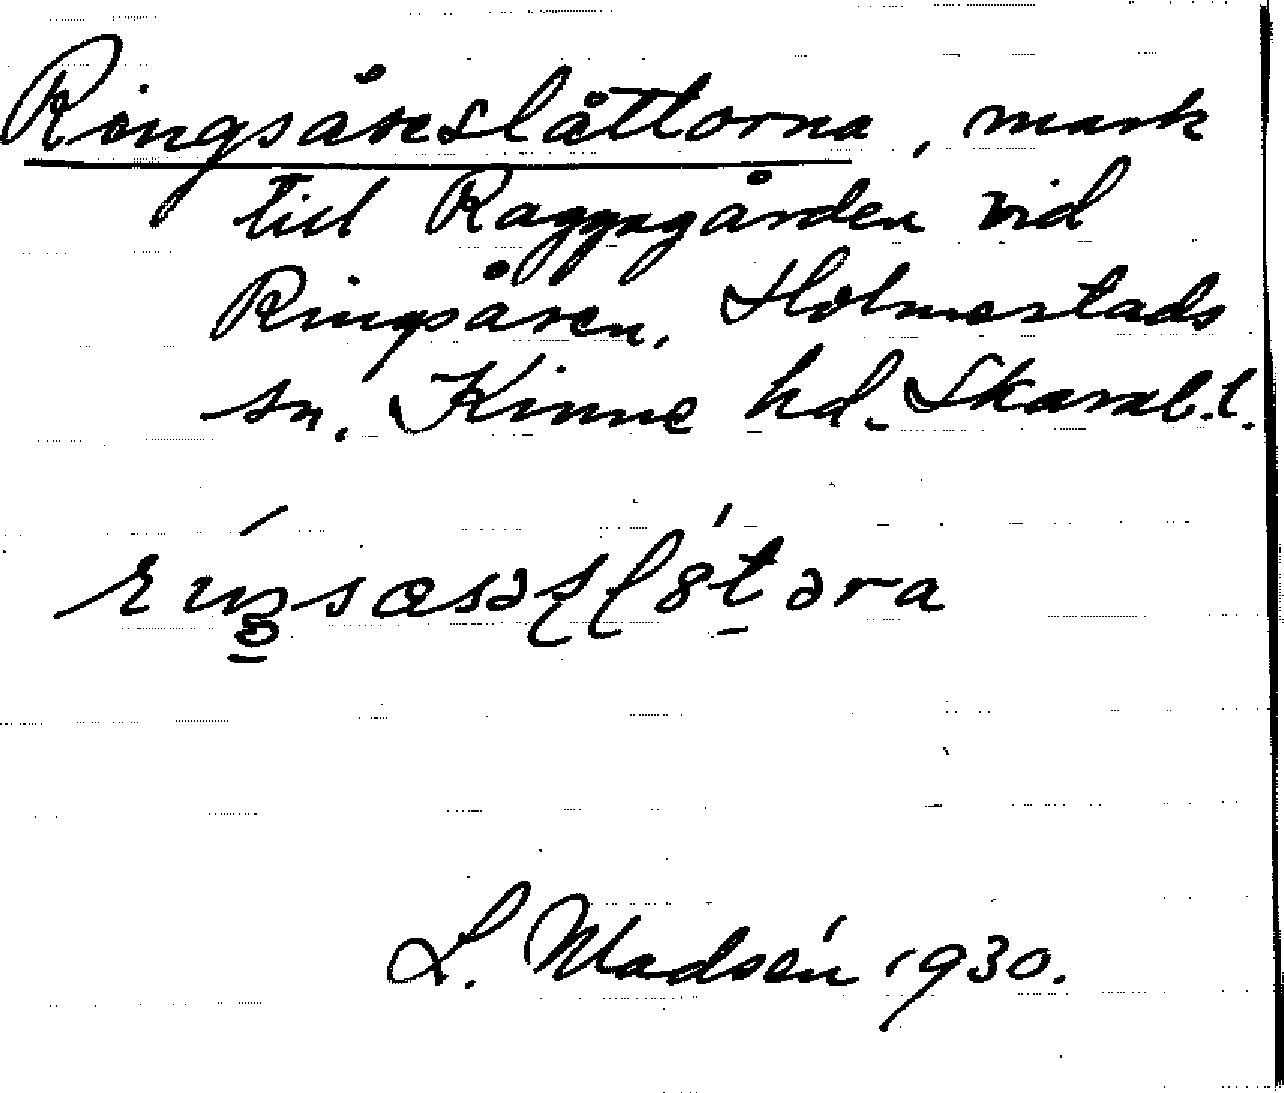 Ringsåseslåttorna, mark
till Raggagården vid
Ringsåsen, Holmestads
sn, Kinne hd. Skarab.l.
L. Madsén 1930.